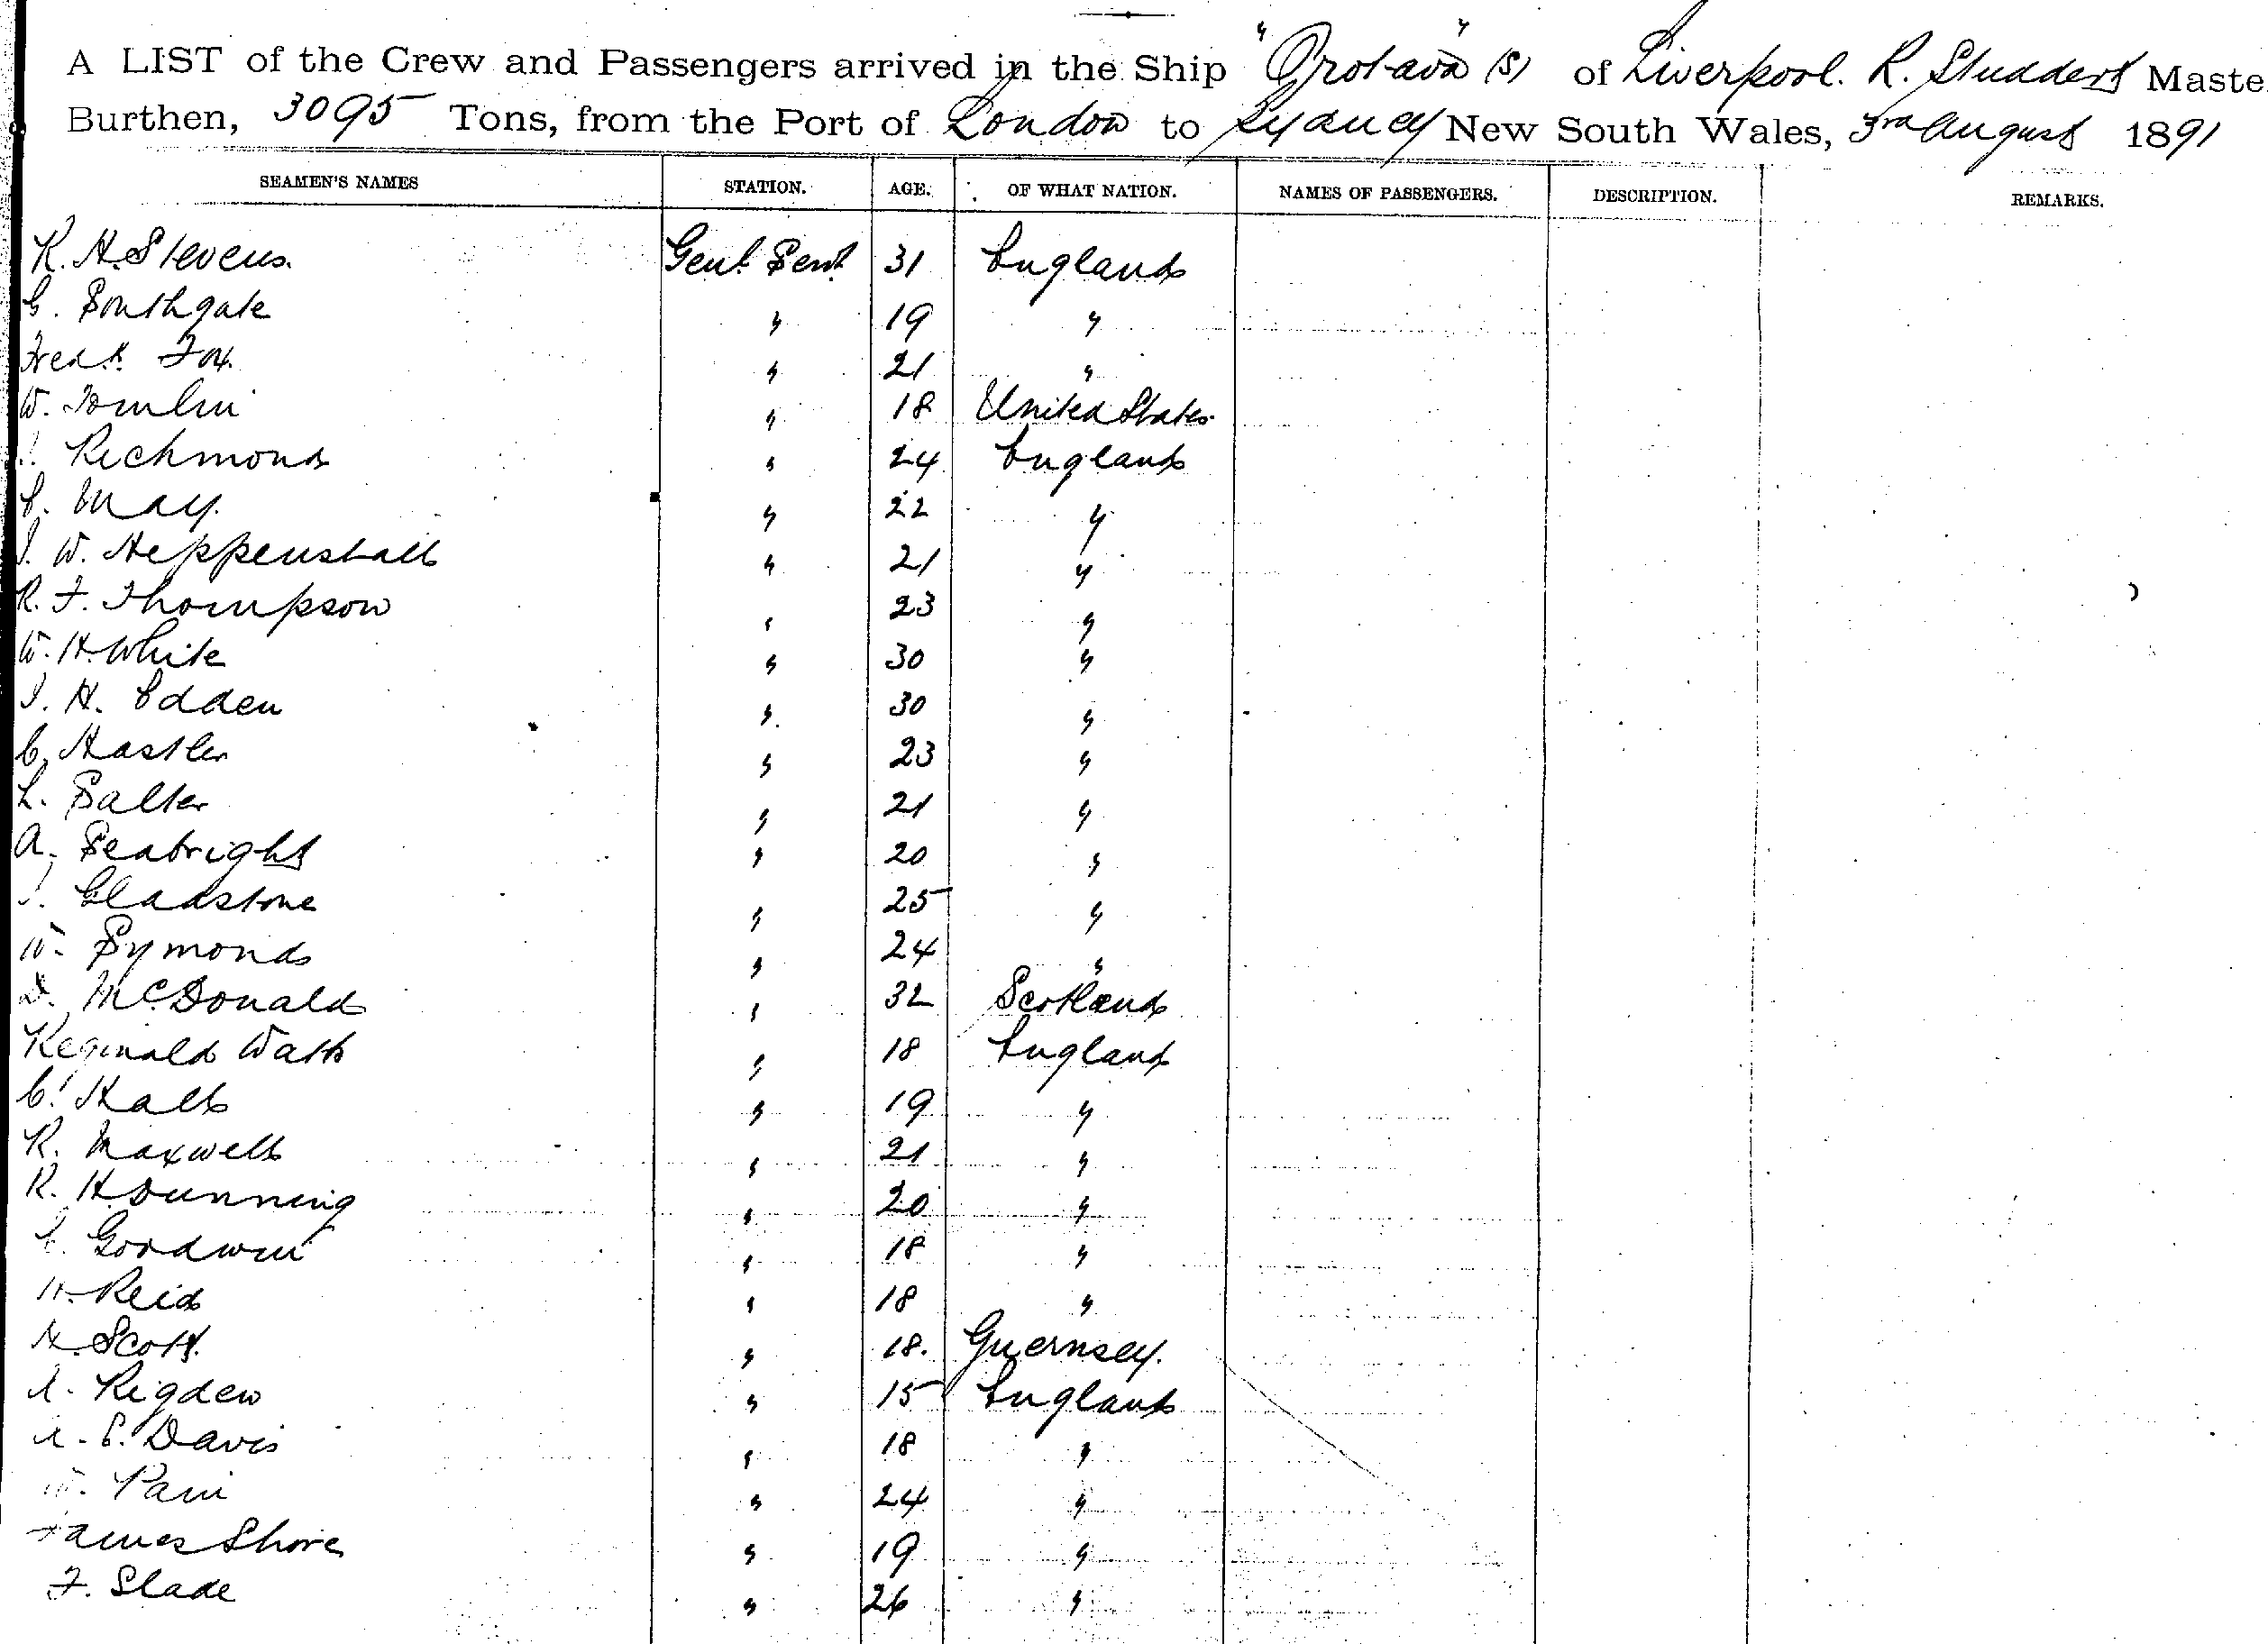 A LIST of the Crew and Passengers arrived in the Ship "Orotava" (S) of Liverpool. R. Studdert Maste
Burthen, 3095 Tons, from the Port of London to Sydney New South Wales, 3rd August 1891
SEAMEN'S NAMES STATION. AGE. OF WHAT NATION. NAMES OF PASSENGERS. DESCRIPTION. REMARKS.
R. H. Stevens. Genl. Servt. 31 England
C. Southgate " 19 "
Fredk. Fox. " 21 "
W. Tomlin " 18 United States.
Richmond " 24 England
C. May. " 22 "
J. W. Heppenstall " 21 "
R. F. Thompson " 23 "
W. H. White " 30 "
J. H. Edden " 30 "
C. Hastler " 23 "
L. Salter " 21 "
A. Seabright " 20 "
Gladstone " 25 "
W. Symonds " 24 "
D. McDonald " 32 Scotland
Reginald Watts " 18 England
C. Hall " 19 "
R. Maxwell " 21 "
R. H. Dunning " 20 "
Goodwin " 18 "
H. Reid " 18 "
H. Scott. " 18. Guernsey.
A. Rigden " 15 England
A. E. Davis " 18 "
W. Pain " 24 "
James Shore " 19 "
F. Slade " 26 "